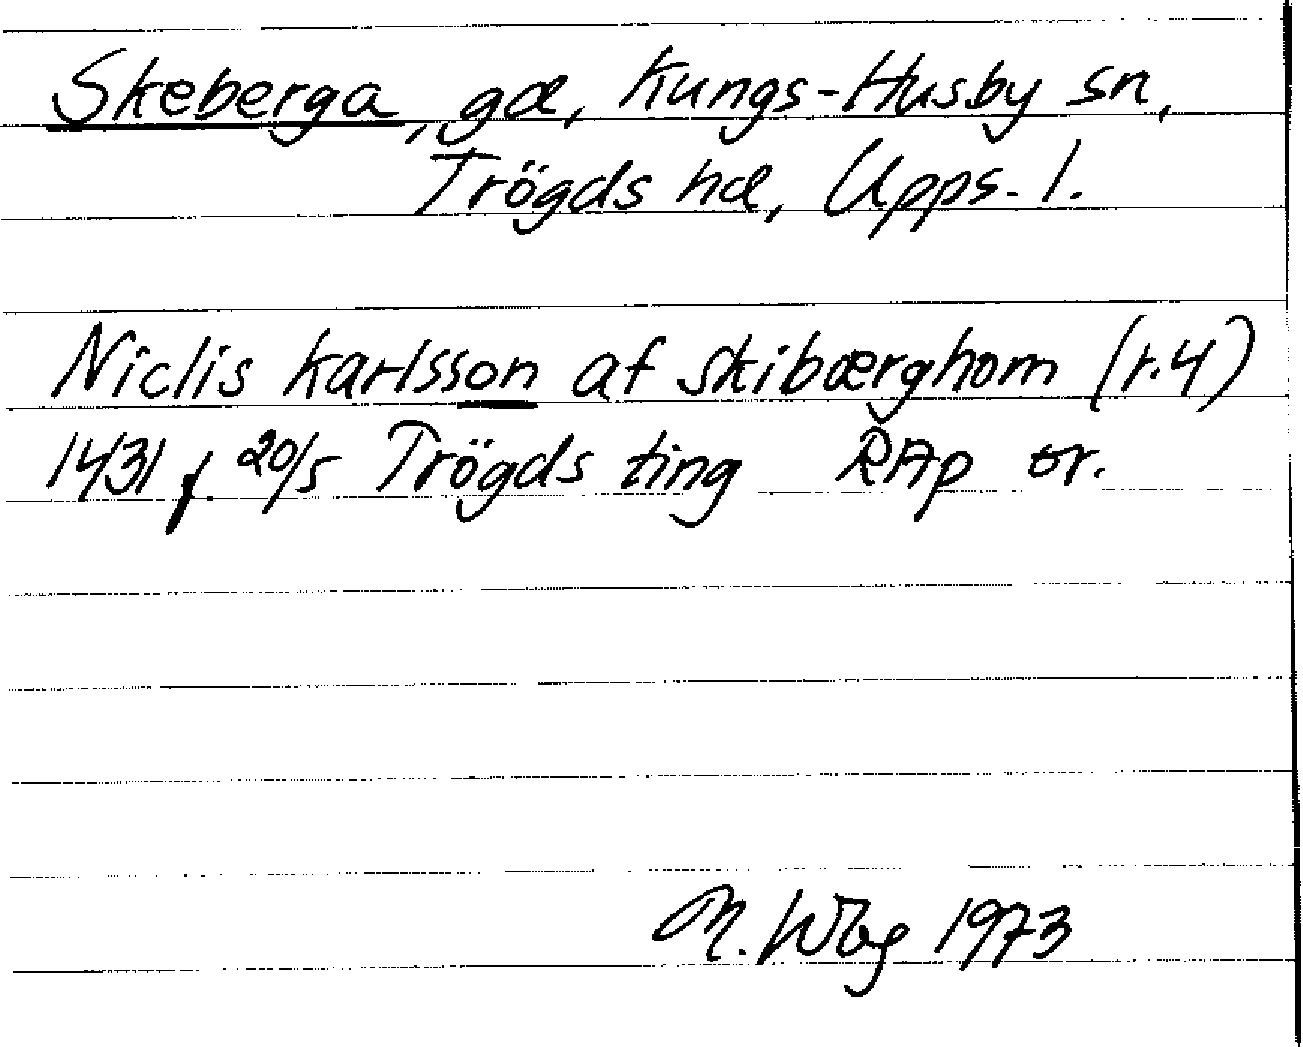 Skeberga, gd, Kungs-Husby sn,
Trögds hd, Upps. l.
Niclis karlsson af skibærghom (r.4)
1431 f. 20/5 Trögds ting RAp or.
M. Wbg 1973